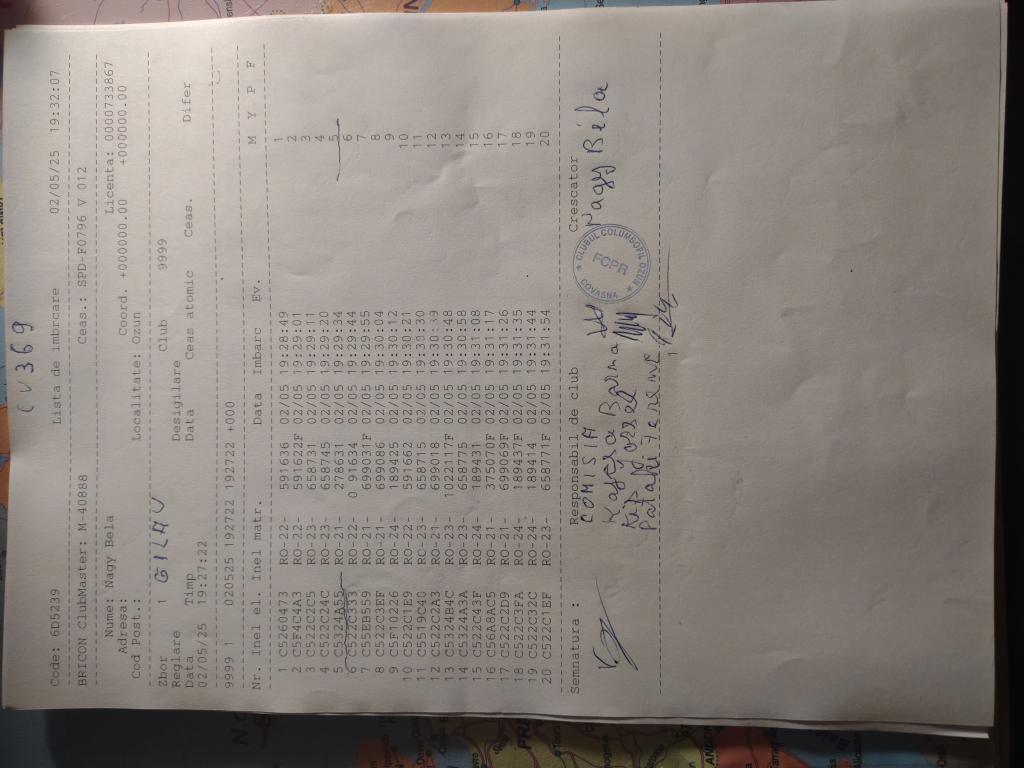 CV 369
Code: 6D5239 Lista de imbrcare 02/05/25 19:32:07
BRICON ClubMaster: M-40888 Ceas.: SPD-F0796 V 012
Nume: Nagy Bela Licenta: 0000733867
Adresa: Coord. +000000.00 +000000.00
Cod Post.: Localitate: Ozun
Zbor 1 GILAU Club 9999
Reglare Desigilare
Data Timp Data Ceas atomic Ceas. Difer
02/05/25 19:27:22
9999 1 020525 192722 192722 +000
Nr. Inel el. Inel matr. Data Imbarc Ev. M Y P F
1 C5260473 RO-22- 591636 02/05 19:28:49 1
2 C5F4C4A3 RO-22- 591622F 02/05 19:29:01 2
3 C522C2C5 RO-23- 658731 02/05 19:29:11 3
4 C522C24C RO-23- 658745 02/05 19:29:20 4
5 C5324A55 RO-21- 278631 02/05 19:29:34 5
6 C522C333 RO-22- 0 91634 02/05 19:29:44 6
7 C5EEB559 RO-21- 699031F 02/05 19:29:55 7
8 C522C3EF RO-21- 699086 02/05 19:30:04 8
9 C5F10226 RO-24- 189425 02/05 19:30:12 9
10 C522C1E9 RO-22- 591662 02/05 19:30:21 10
11 C5519C40 RO-23- 658715 02/05 19:30:30 11
12 C522C2A3 RO-21- 699018 02/05 19:30:39 12
13 C5324B4C RO-23- 1022117F 02/05 19:30:48 13
14 C5324A3A RO-23- 658775 02/05 19:30:58 14
15 C522C43F RO-24- 189431 02/05 19:31:08 15
16 C56A8AC5 RO-21- 375070F 02/05 19:31:17 16
17 C522C2D5 RO-21- 699069F 02/05 19:31:26 17
18 C522C3FA RO-24- 189437F 02/05 19:31:35 18
19 C522C32C RO-24- 189414 02/05 19:31:44 19
20 C522C1EF RO-23- 658771F 02/05 19:31:54 20
Semnatura : Responsabil de club Crescator
COMISIA
Nagy Béla
CLUBUL COLUMBOFIL ROZO
FCPR
COVASNA
1